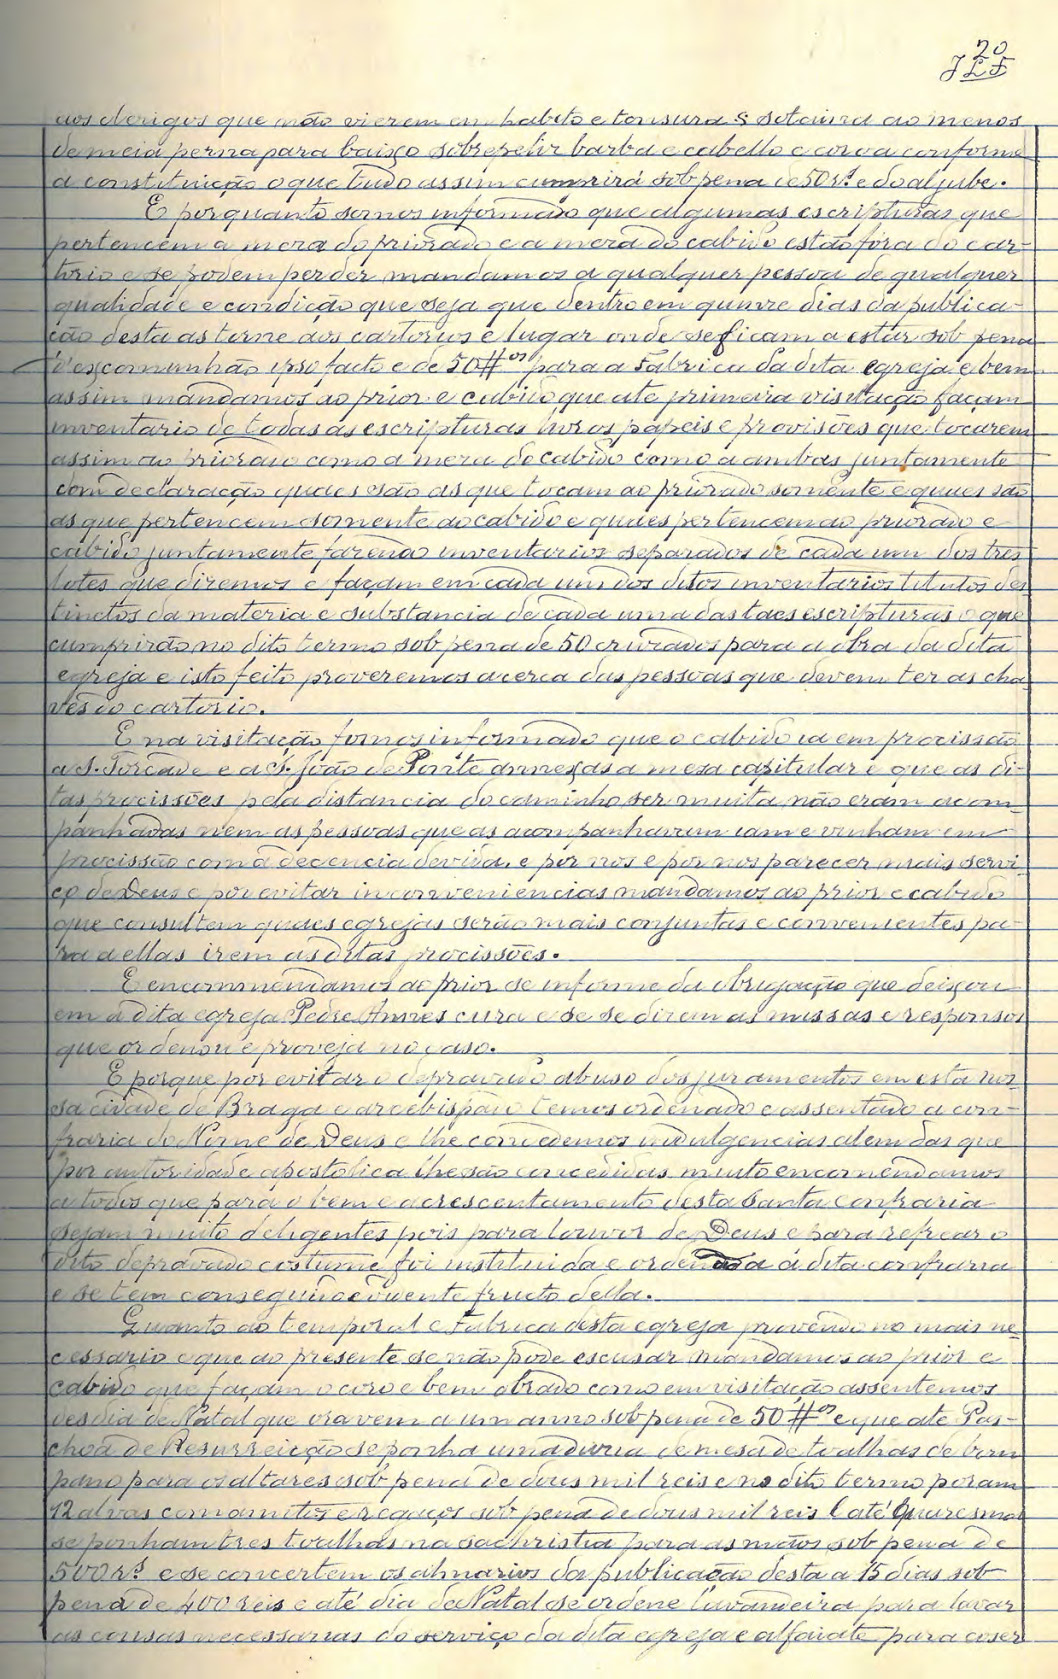 20
JLF
aos clerigos que não vierem em habito e tonsura e sotaina ao menos
de meia perna para baixo sobrepeliz barba e cabello e coroa conforme
a constituição o que tudo assim cumprirá sob pena de 50 rs. e do aljube.
E porquanto somos informado que algumas escripturas que
pertencem a meza do priorado e a meza do cabido estão fóra do car-
torio e se podem perder mandamos a qualquer pessoa de qualquer
qualidade e condição que seja que dentro em quinze dias da publica-
ção desta as torne aos cartorios e lugar onde se ficam a estar sob pena
d'excomunhão ipso facto e de 50 #os para a Fabrica da dita egreja e bem
assim mandamos ao prior e cabido que até primeira visitação façam
inventario de todas as escripturas livros papeis e provisões que tocarem
assim ao priorado como a meza do cabido como a ambas juntamente
com declaração quaes são as que tocam ao priorado somente e quaes são
as que pertencem somente ao cabido e quaes pertencem ao priorado e
cabido juntamente fazendo inventarios separados de cada um dos tres
lotes que diremos e façam em cada um dos ditos inventarios titulos des-
tinctos da materia e substancia de cada uma das taes escripturas o que
cumprirão no dito termo sob pena de 50 cruzados para a obra da dita
egreja e isto feito proveremos acerca das pessoas que devem ter as cha-
ves do cartorio.
E na visitação fomos informado que o cabido ia em procissão
a S. Torcade e a S. João de Ponte annexas a mesa capitular e que as di-
tas procissões pela distancia do caminho ser muita não eram acom-
panhadas nem as pessoas que as acompanhavam iam e vinham em
procissão com a decencia devida, e por nos e por nos parecer mais servi-
ço de Deus e por evitar inconveniencias mandamos ao prior e cabido
que consultem quaes egrejas serão mais conjuntas e convenientes pa-
ra a ellas irem as ditas procissões.
E encommendamos ao prior se informe da obrigação que deixou
em a dita egreja Pedre Annes cura e se se diram as missas e responsos
que ordenou e proveja no caso.
E porque por evitar o depravado abuso dos juramentos em esta nos-
sa cidade de Braga e arcebispado temos ordenado e assentado a con-
fraria do Nome de Deus e lhe concedemos indulgencias alem das que
por autoridade apostolica lhe são concedidas muito encomendamos
a todos que para o bem e acrescentamento desta Santa confraria
sejam muito deligentes pois para louvor de Deus e para refrear o
dito depravado costume foi instituida e ordenada á dita confraria
e se tem conseguido evidente fructo della.
Quanto ao temporal e Fabrica desta egreja provendo no mais ne-
cessario e que ao presente se não pode escusar mandamos ao prior e
cabido que façam o coro e bem obrado como em visitação assentemos
des dia de Natal que ora vem a um anno sob pena de 50 #os e que até Pas-
choa de Resurreição se ponha uma duzia de mesa de toalhas de bom
pano para os altares sob pena de dous mil reis e no dito termo poram
12 alvas com amitos e regaços sob pena de dous mil reis e até Quaresma
se ponham tres toalhas na sachristia para as mãos sob pena de
500 rs. e se concertem os almarios da publicação desta a 15 dias sob
pena de 400 reis e até dia de Natal se ordene lavandeira para lavar
as cousas necessarias do serviço da dita egreja e alfaiate para coser